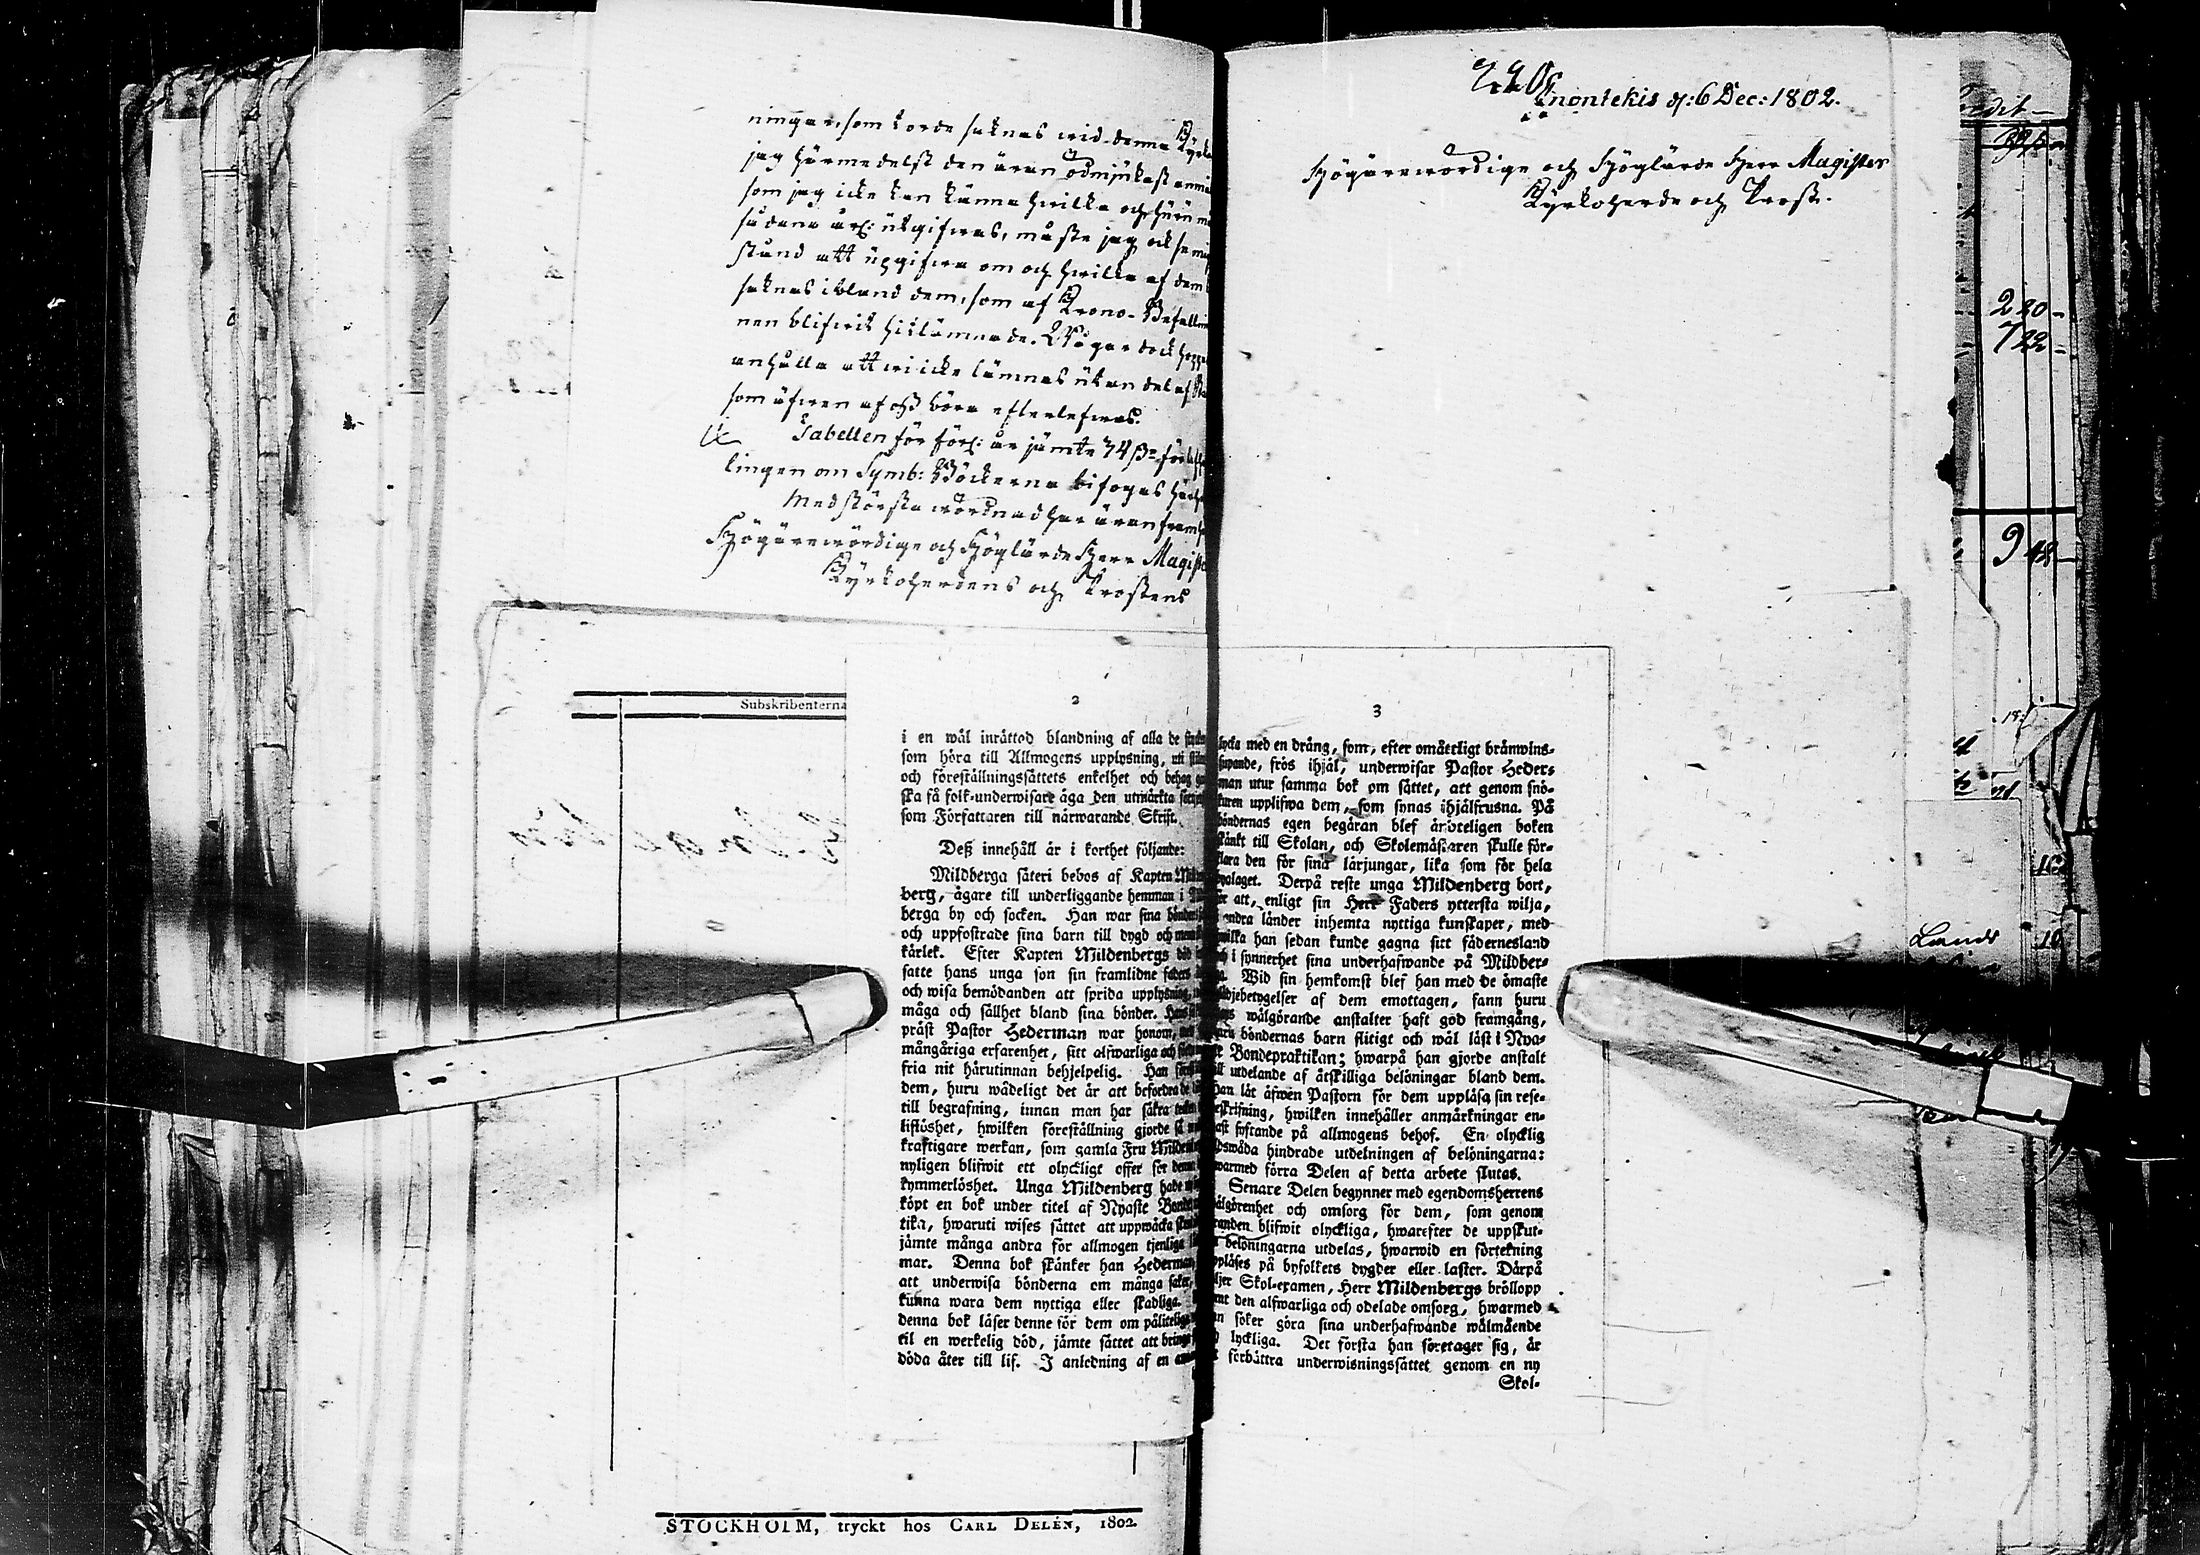 ningar, som torde saknas wid denna
jag härmedelst den äran ödmjukast
som jag icke kan känna hwilka och huru
sådana årl: utgifwas, måste jag ock
stånd att uppgifwa om och hwilka af dem
saknas ibland dem, som af Krono-Befallni
nen blifwit hitlämnade. Wågar dock
anhålla att wi icke lämnas utan del af
som äfwen af oss böra efterlefwas.
Tabellen för förl: år jämte 34
lingen om Symb: Böckerna bifogas
Med största wördnad har äran
Högärewördige och Höglärde Herr Magiste
Kyrkoherdens och Prostens
Enontekis d: 6 Dec: 1802.
Högärewördige och Höglärde Herr Magister
Kyrkoherde och Prost.
Subskribenterna
2
i en wäl inrättad blandning af alla de
som höra till Allmogens upplysning,
och föreställningssättets enkelhet och behag
ska få folk-underwisare äga den utmärkta
som Författaren till närwarande Skrift.
Deß innehåll är i korthet följande:
Mildberga säteri bebos af Kapten
berg, ägare till underliggande hemman i
berga by och socken. Han war sina
och uppfostrade sina barn till dygd och
kärlek. Efter Kapten Mildenbergs
satte hans unga son sin framlidne
och wisa bemödanden att sprida upplysning,
måga och sällhet bland sina bönder.
präst Pastor Hederman war honom,
mångåriga erfarenhet, sitt alfwarliga och
fria nit härutinnan behjelpelig. Han
dem, huru wådeligt det är att befordra de
till begrafning, innan man har säkra
liflöshet, hwilken föreställning gjorde så
kraftigare werkan, som gamla Fru
nyligen blifwit ett olyckligt offer för
kymmerlöshet. Unga Mildenberg hade
köpt en bok under titel af Nyaste
tika, hwaruti wises sättet att uppwäcka
jämte många andra för allmogen tjenliga
mar. Denna bok skänker han Hederman,
att underwisa bönderna om många saker,
kunna wara dem nyttiga eller skadliga.
denna bok läser denne för dem om
til en werkelig död, jämte sättet att
döda åter till lif. I anledning af en
3
lycka med en dräng, som, efter omåttligt bränwins-
supande, frös ihjäl, underwisar Pastor Heder-
man utur samma bok om sättet, att genom snö-
kuren upplifwa dem, som synas ihjälfrusna. På
böndernas egen begäran blef ändteligen boken
skänkt till Skolan, och Skolemästaren skulle för-
klara den för sina lärjungar, lika som för hela
byalaget. Derpå reste unga Mildenberg bort,
för att, enligt sin Herr Faders yttersta wilja,
i andra länder inhemta nyttiga kunskaper, med
hwilka han sedan kunde gagna sitt fädernesland
och i synnerhet sina underhafwande på Mildber-
ga. Wid sin hemkomst blef han med de ömaste
glädjebetygelser af dem emottagen, fann huru
hans wälgörande anstalter haft god framgång,
huru böndernas barn flitigt och wäl läst i Nya-
ste Bondepraktikan; hwarpå han gjorde anstalt
till utdelande af åtskilliga belöningar bland dem.
Han lät äfwen Pastorn för dem uppläsa sin rese-
beskrifning, hwilken innehåller anmärkningar en-
dast syftande på allmogens behof. En olycklig
eldswåda hindrade utdelningen af belöningarna:
hwarmed förra Delen af detta arbete slutas.
Senare Delen begynner med egendomsherrens
wälgörenhet och omsorg för dem, som genom
branden blifwit olyckliga, hwarefter de uppskut-
na belöningarna utdelas, hwarwid en förtekning
uppläses på byfolkets dygder eller laster. Därpå
följer Skol-examen, Herr Mildenbergs bröllopp
samt den alfwarliga och odelade omsorg, hwarmed
han söker göra sina underhafwande wälmående
och lyckliga. Det första han företager sig, är
att förbättra underwisningssättet genom en ny
Skol-
STOCKHOLM, tryckt hos CARL DELÉN, 1802.
220
722
942
Lands